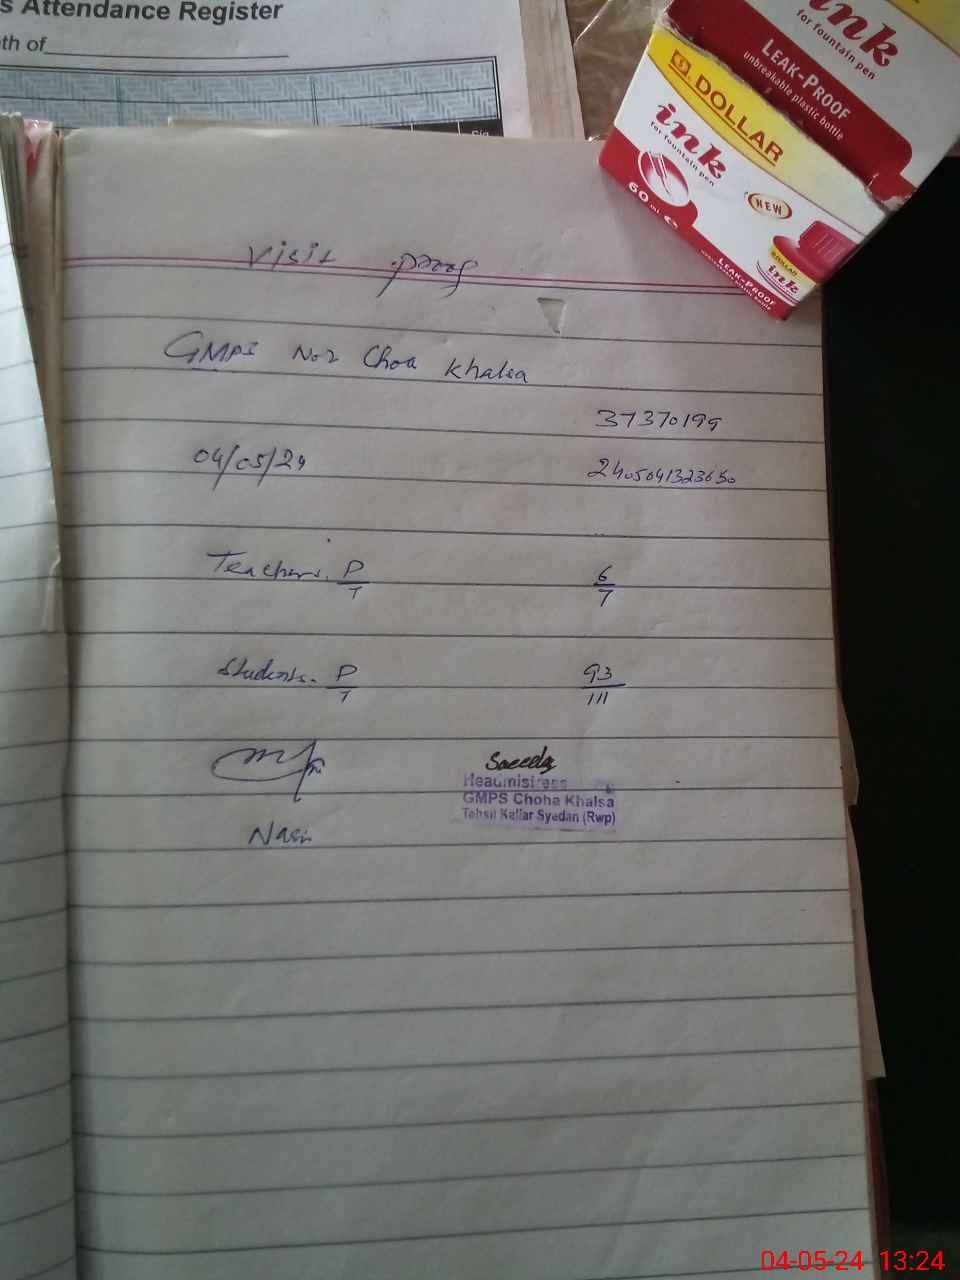 s Attendance Register
th of
Sig
ink
for fountain pen
LEAK-PROOF
unbreakable plastic bottle
DOLLAR
ink
for fountain pen
NEW
60 ml
DOLLAR
ink
LEAK-PROOF
unbreakable plastic bottle
Visit proof
GMPS No2 Choa Khalsa
37370199
04/05/24
2405041323650
Teachers. P/T 6/7
Students. P/T 93/111
Saeeda
Headmistress
GMPS Choha Khalsa
Tehsil Kallar Syedan (Rwp)
04-05-24 13:24